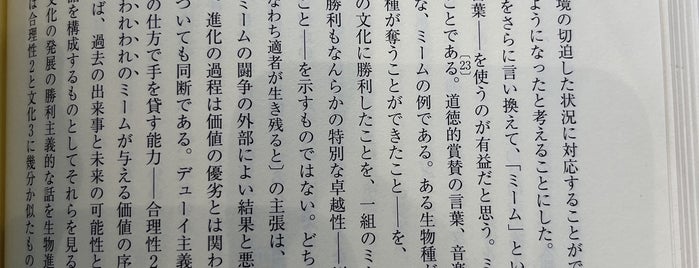 境の切迫した状況に対応することがで
ようになったと考えることにした。
をさらに言い換えて、「ミーム」とい
葉――を使うのが有益だと思う。ミー
ことである。道徳的賞賛の言葉、音楽
[23]
な、ミームの例である。ある生物種が
種が奪うことができたこと――を、
の文化に勝利したことを、一組のミー
勝利もなんらかの特別な卓越性――
こと――を示すものではない。どち
なわち適者が生き残ると〕の主張は、
ミームの闘争の外部によい結果と悪
、進化の過程は価値の優劣とは関わ
ついても同断である。デューイ主義
の仕方で手を貸す能力――合理性2
われわれの、ミームが与える価値の序
ば、過去の出来事と未来の可能性と
を構成するものとしてそれらを見る
文化の発展の勝利主義的な話を生物進
は合理性2と文化3に幾分か似たもの